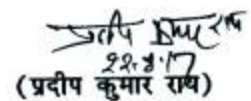 प्रदीप कुमार राय
22.8.17
(प्रदीप कुमार राय)